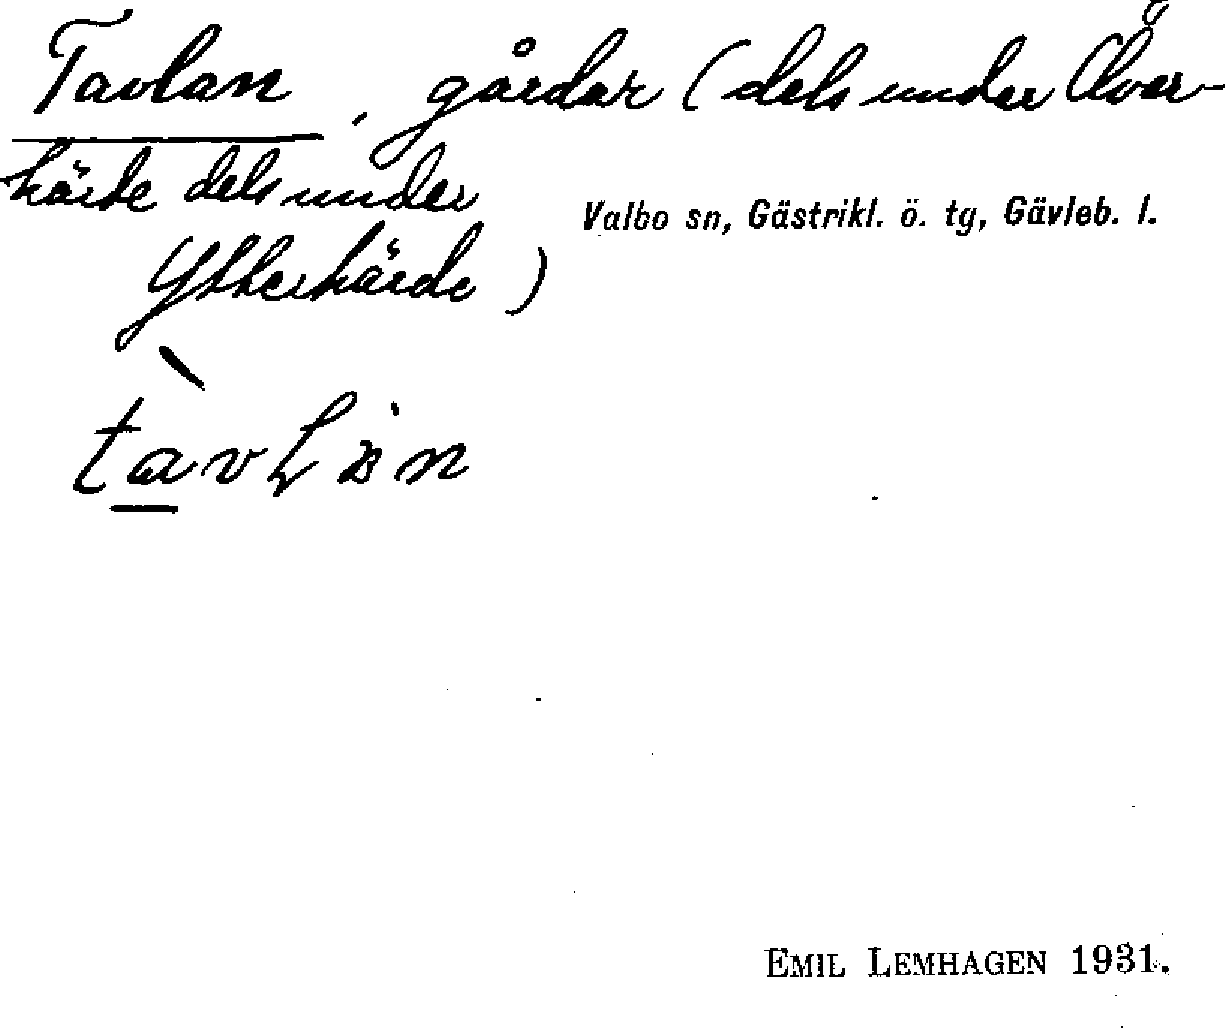 Tavlan, gårdar (dels under Över-
härde dels under
Ytterhärde)
Valbo sn, Gästrikl. ö. tg, Gävleb. l.
EMIL LEMHAGEN 1931.